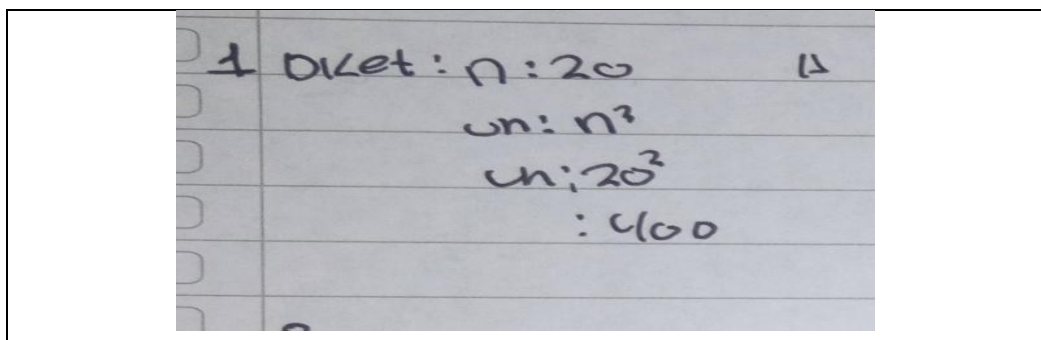 1 Diket : n : 20
un : n²
un : 20²
: 400